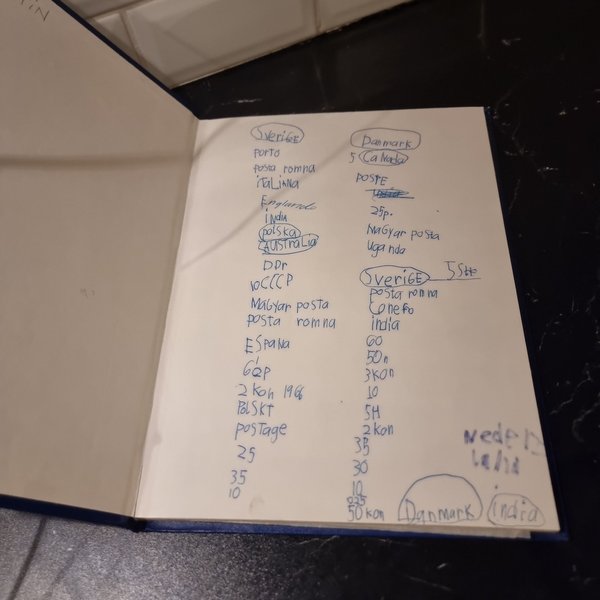 SveriGE
porto
posta romna
itaLiana
Englands
india
polska
AUStraLia
DDr
10CCCP
MaGyar posta
posta romna
ESPaNa
6½p
2 Kon 1966
PoLSKT
postage
25
35
10
Danmark
5 CaNada
POSTE
25p.
MaGyar posta
Uganda
SveriGE
posta romna
india
60
50n
3Kon
10
5H
2 kon
35
30
10
50 kon
Danmark
india